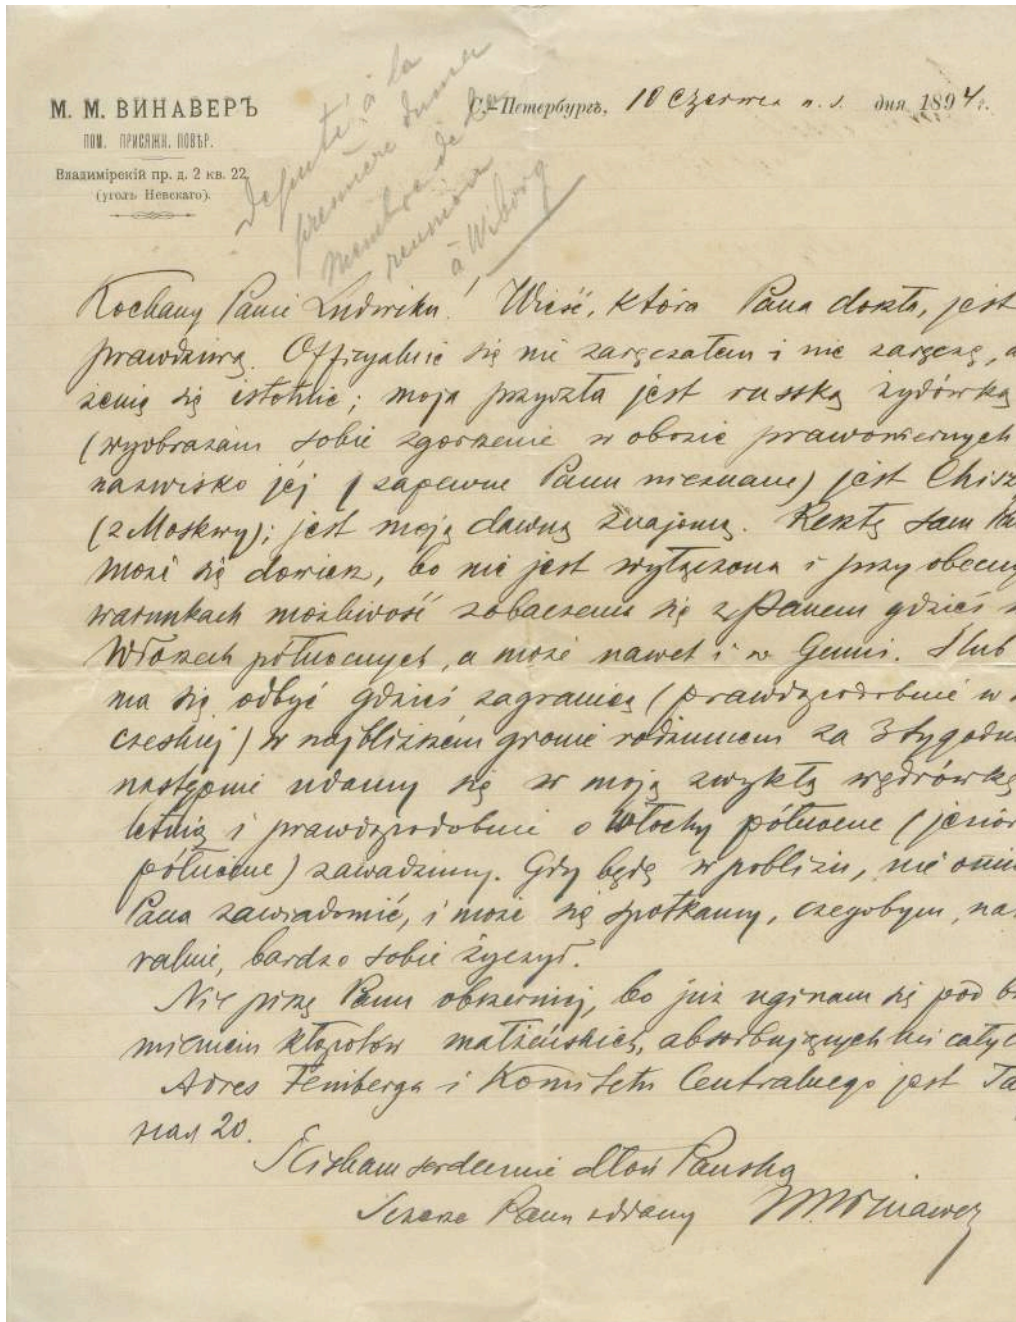 М. М. ВИНАВЕРЪ
ПОМ. ПРИСЯЖН. ПОВѢР.
Владимірскій пр. д. 2 кв. 22
(уголъ Невскаго).
С.-Петербургъ, 10 Czerwca n. s. дня 1894 г.
Député à la
première duma
Membre de la
reunion
à Wiborg
Kochany Panie Ludwiku! Wieść, która Pana doszła, jest
prawdziwą. Officyalnie się nie zaręczałem i nie zaręczę, a
żenię się istotnie; moja przyszła jest russką żydówką
(wyobrażam sobie zgorszenie w obozie prawowiernych
nazwisko jéj (zapewne Panu nieznane) jest Chisz
(z Moskwy); jest moją dawną znajomą. Resztę sam
może się dowiesz, bo nie jest wyłączona i przy obecny
warunkach możliwość zobaczenia się z Panem gdzieś
Włoszech północnych, a może nawet i w Genui. Ślub
ma się odbyć gdzieś zagranicą (prawdopodobnie w
czeskiej) w najbliższém gronie rodzinnem za 3 tygodn
następnie udamy się w moją zwykłą wędrówkę
letnią i prawdopodobnie o Włochy północne (jezior
północne) zawadzimy. Gdy będę w pobliżu, nie omie
Pana zawiadomić, i może się spotkamy, czegobym, na
ralnie, bardzo sobie życzył.
Nie piszę Panu obszerniej, bo już uginam się pod b
mieniem kłopotów małżeńskich, absorbujących
Adres Feinberga i Komitetu Centralnego jest
20.
Ściskam serdecznie dłoń Pańską
Szczerze Panu oddany M. Winawer